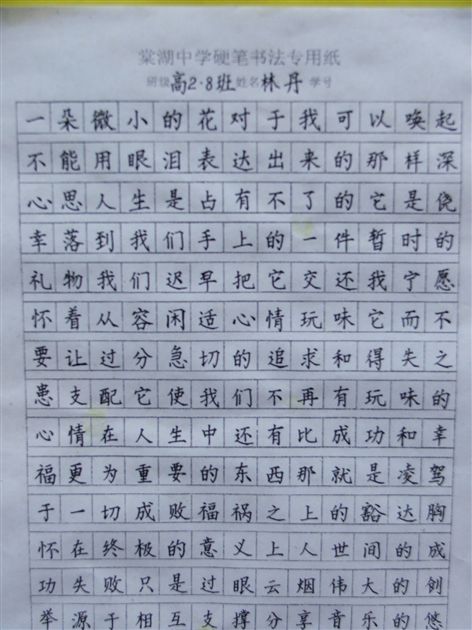 棠湖中学硬笔书法专用纸
班级高2·8班姓名林丹 学号
一朵微小的花对于我可以唤起
不能用眼泪表达出来的那样深
心思人生是占有不了的它是侥
幸落到我们手上的一件暂时的
礼物我们迟早把它交还我宁愿
怀着从容闲适心情玩味它而不
要让过分急切的追求和得失之
患支配它使我们不再有玩味的
心情在人生中还有比成功和幸
福更为重要的东西那就是凌驾
于一切成败福祸之上的豁达胸
怀在终极的意义上人世间的成
功失败只是过眼云烟伟大的创
举源于相互支撑分享音乐的悠